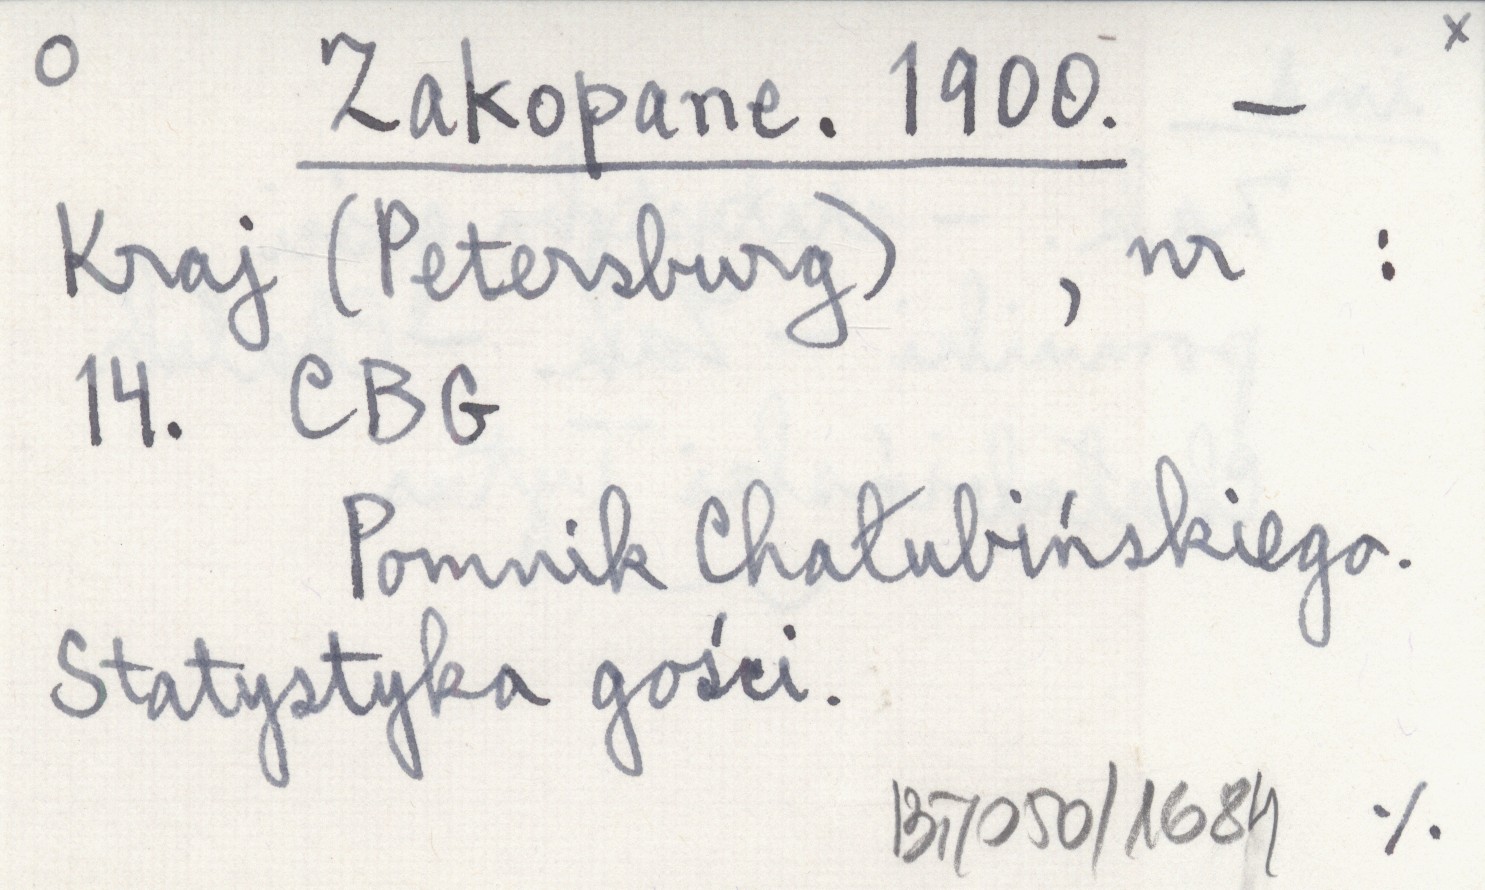 O Zakopane. 1900. — x
Kraj (Petersburg) , nr :
14. CBG
Pomnik Chałubińskiego.
Statystyka gości.
/050/1684 ./.